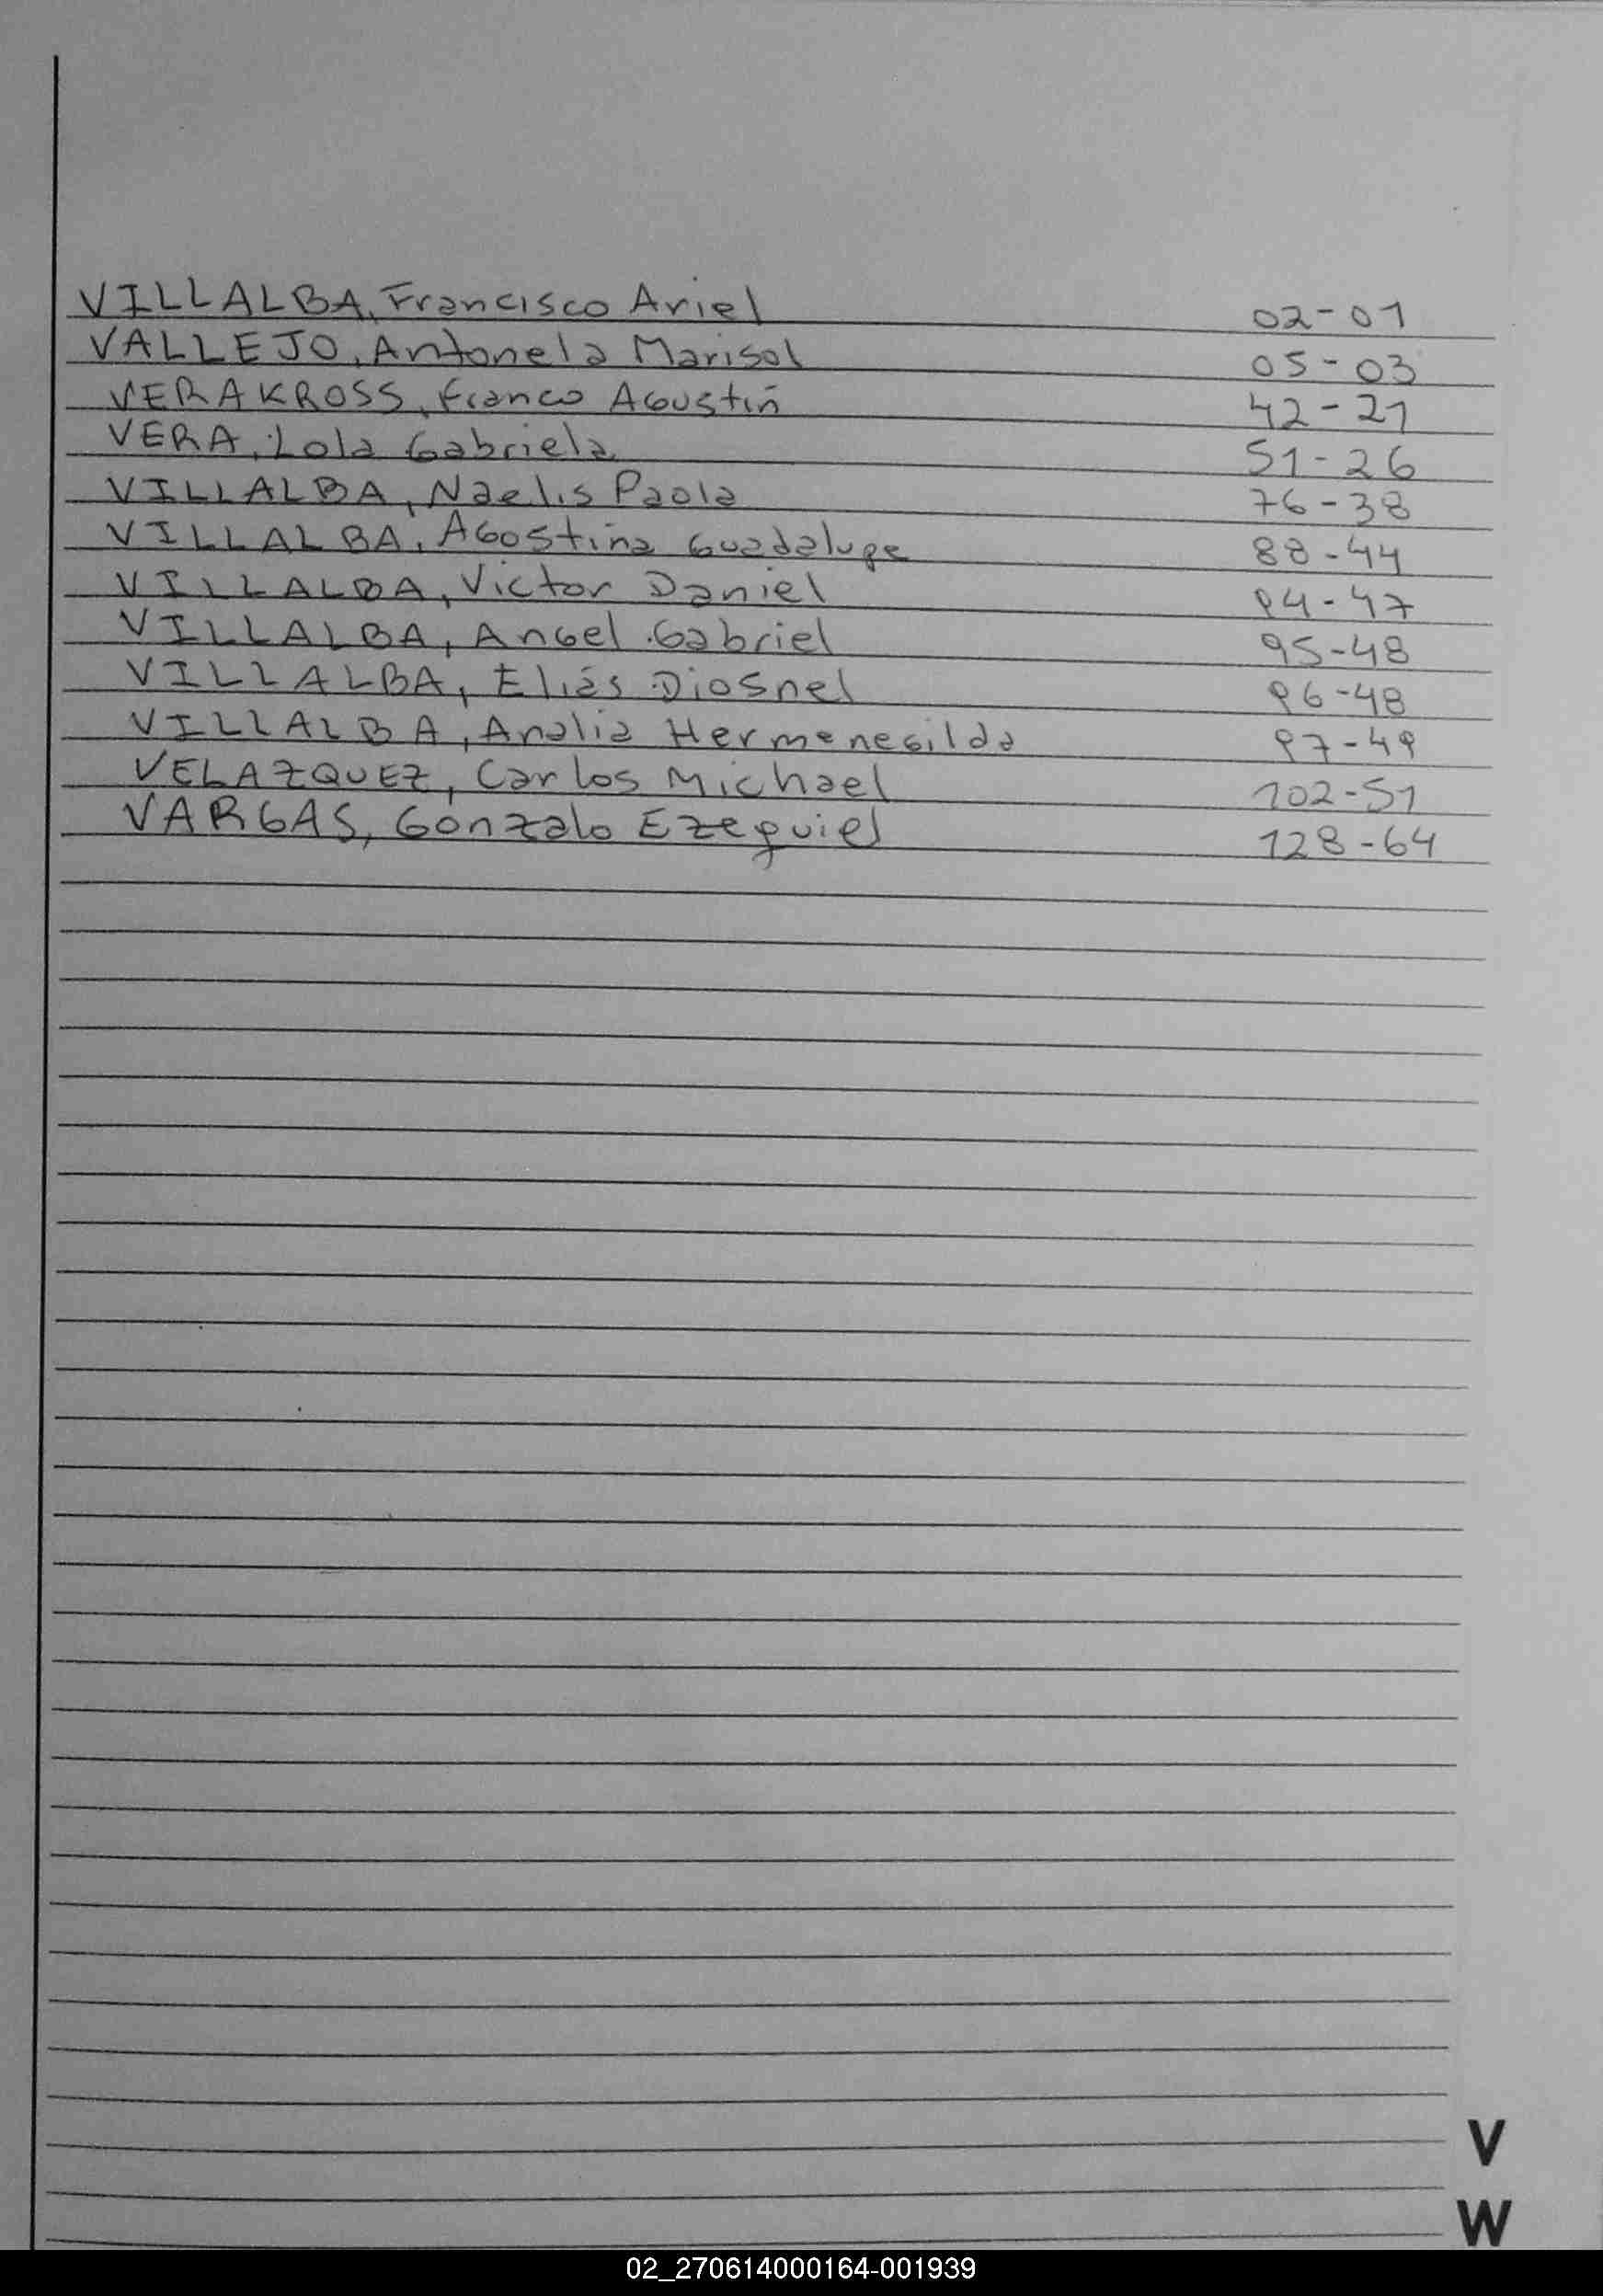 VILLALBA, Francisco Ariel 02-01
VALLEJO, Antonela Marisol 05-03
VERAKROSS, Franco Agustin 42-21
VERA, Lola Gabriela 51-26
VILLALBA, Naelis Paola 76-38
VILLALBA, Agostina Guadalupe 88-44
VILLALBA, Victor Daniel 94-47
VILLALBA, Angel Gabriel 95-48
VILLALBA, Eliás Diosnel 96-48
VILLALBA, Analia Hermenegilda 97-49
VELAZQUEZ, Carlos Michael 102-51
VARGAS, Gonzalo Ezequiel 128-64
V
W
02_270614000164-001939